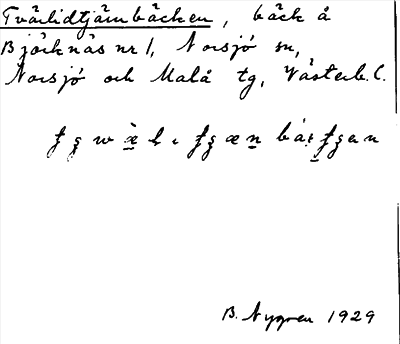 Tvärlidtjärnbäcken, bäck å
Björknäs nr 1, Norsjö sn,
Norsjö och Malå tg, Västerb. l.
B. Nygren 1929